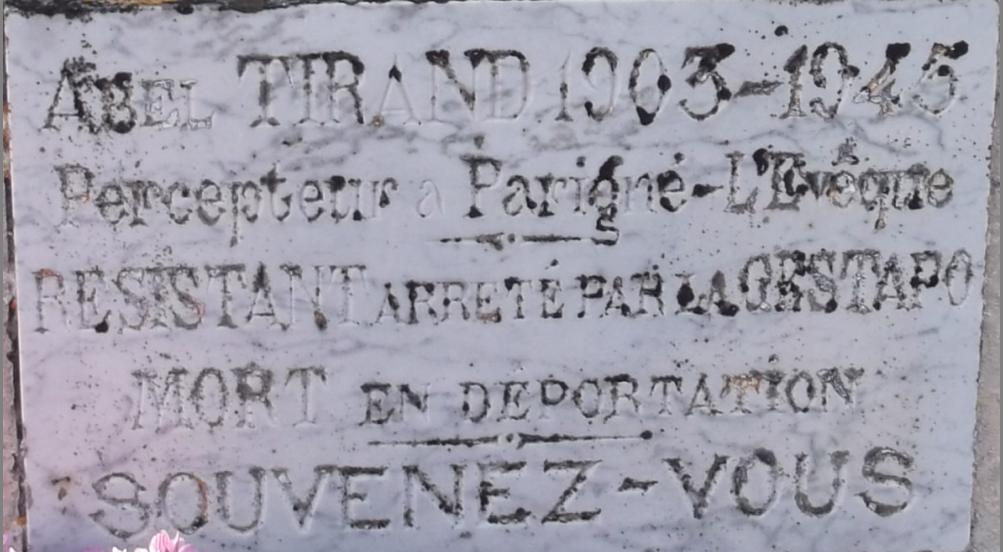 ABEL TIRAND 1903-1945
Percepteur a Parigné-L'Evêque
RESISTANT ARRETÉ PAR LA GESTAPO
MORT EN DEPORTATION
SOUVENEZ-VOUS